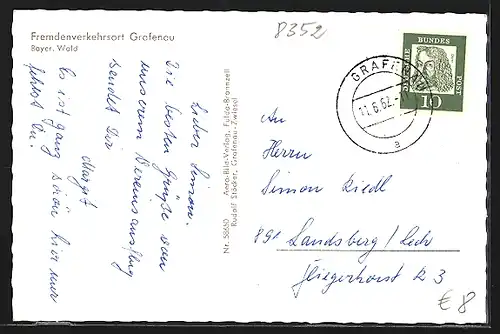 Fremdenverkehrsort Grafenau
Bayer. Wald
8352
Lieber Simon.
Die besten Grüße von
unserem Vereinsausflug
sendet Dir
Margit
Es ist ganz schön hier nur
fehlst Du.
Nr. 58650 Aero-Bild-Verlag, Fulda-Bronnzell
Rudolf Stöcker, Grafenau-Zwiesel
DEUTSCHE BUNDESPOST
10
GRAFENAU
11.6.62.
a
An
Herrn
Simon Riedl
891 Landsberg/Lech
Fliegerhorst R 3
€ 8